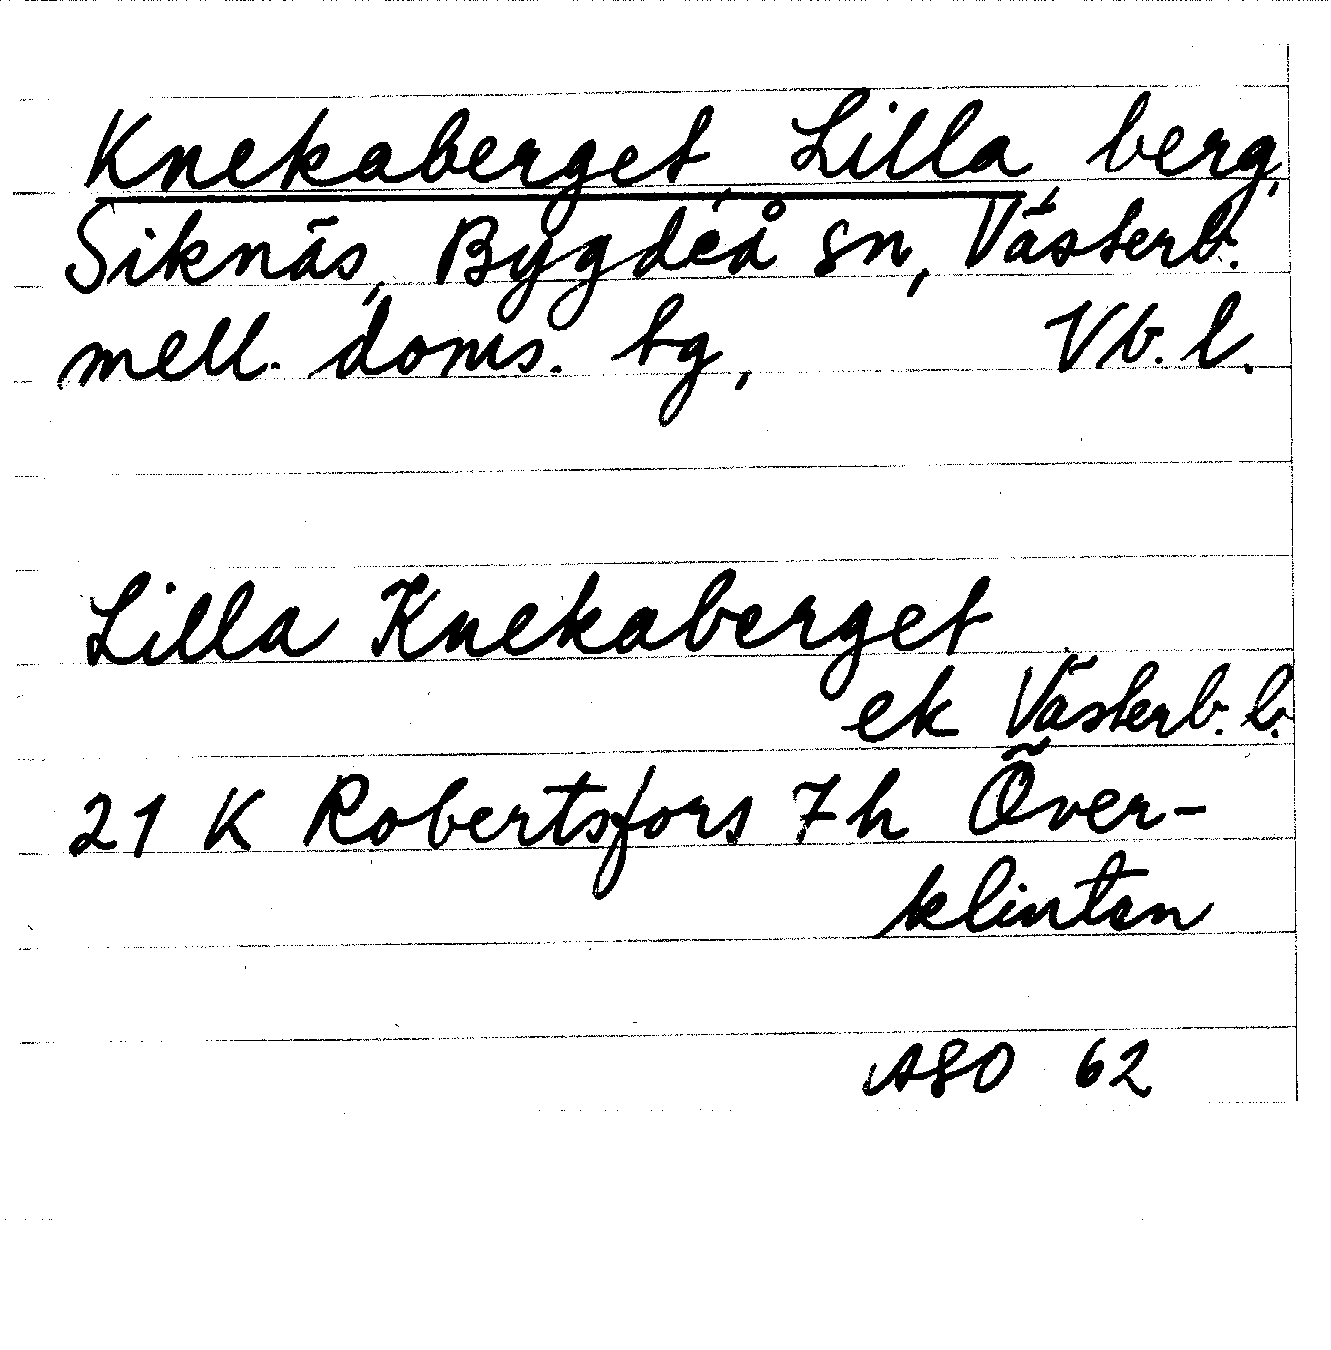 Knekaberget, Lilla, berg,
Siknäs, Bygdeå sn, Västerb.
mell. doms. tg, Vb. l.
Lilla Knekaberget
ek Västerb. l.
21 K Robertsfors 7h Över-
klinten
ASO 62